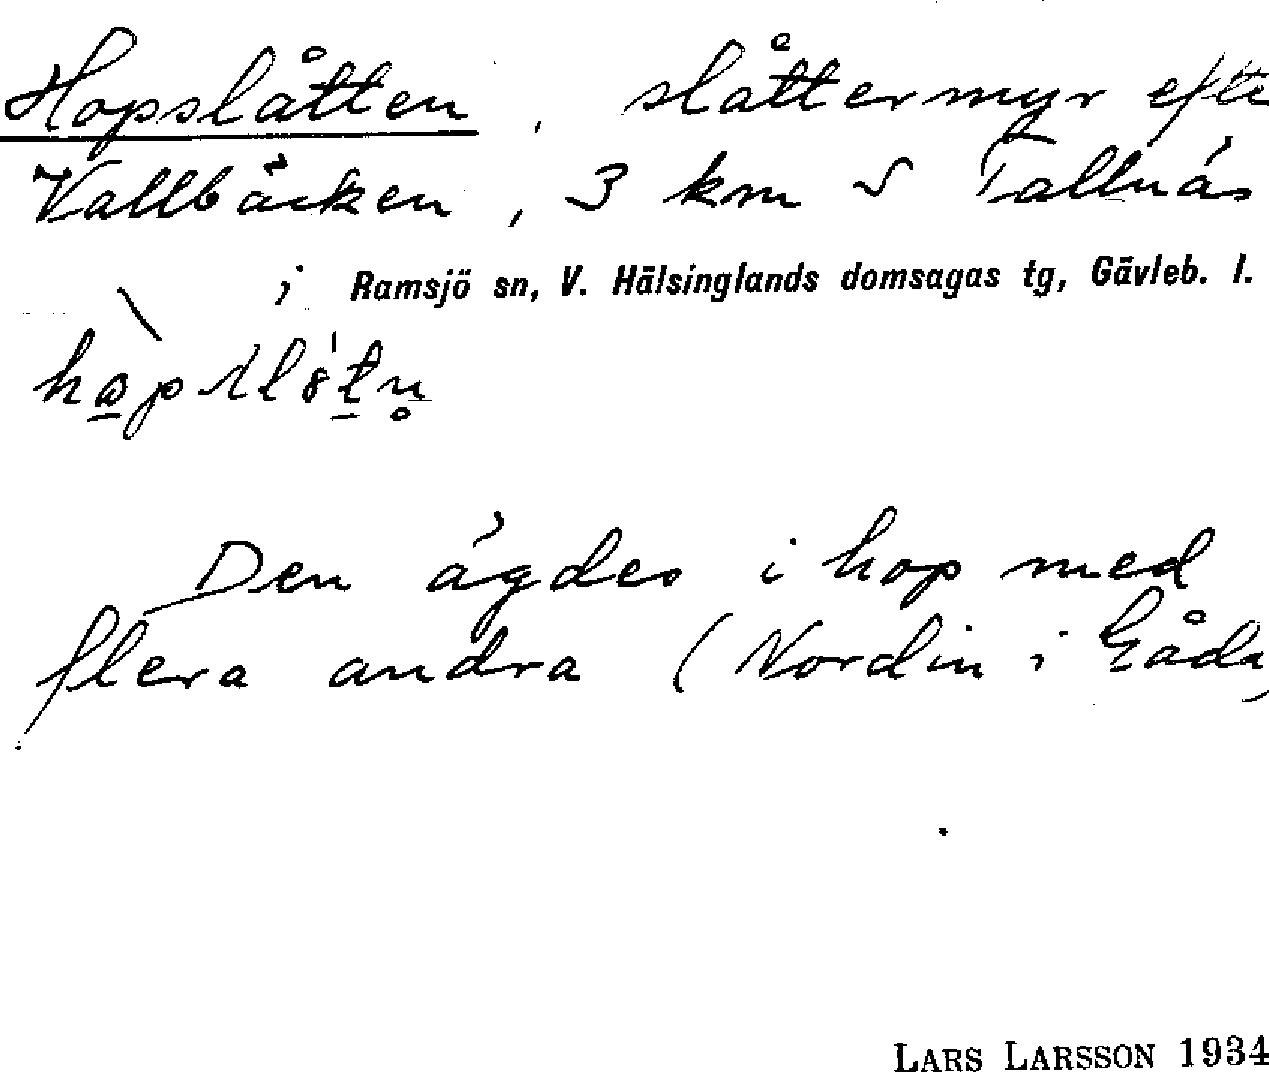 Hopslåtten, slåttermyr efte
Vallbäcken, 3 km S Tallnäs
i Ramsjö sn, V. Hälsinglands domsagas tg, Gävleb. l.
Den ägdes i hop med
flera andra (Nordin i
LARS LARSSON 1934